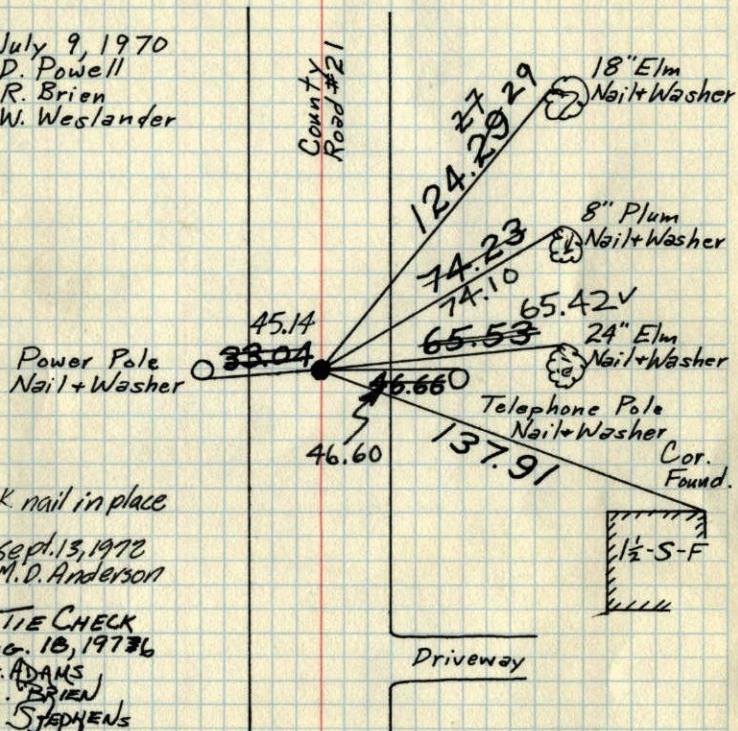 July 9, 1970
D. Powell
R. Brien
W. Weslander
County
Road #21
18" Elm
Nail+Washer
27 29
124.29
8" Plum
Nail+Washer
74.23
74.10
65.42√
65.53
24" Elm
Nail+Washer
45.14
33.04
Power Pole
Nail+Washer
46.66
46.60
Telephone Pole
Nail+Washer
137.91
Cor.
Found.
1½-S-F
K nail in place
Sept. 13, 1972
M.D. Anderson
TIE CHECK
G. 18, 1976
ADAMS
BRIEN
STEPHENS
Driveway